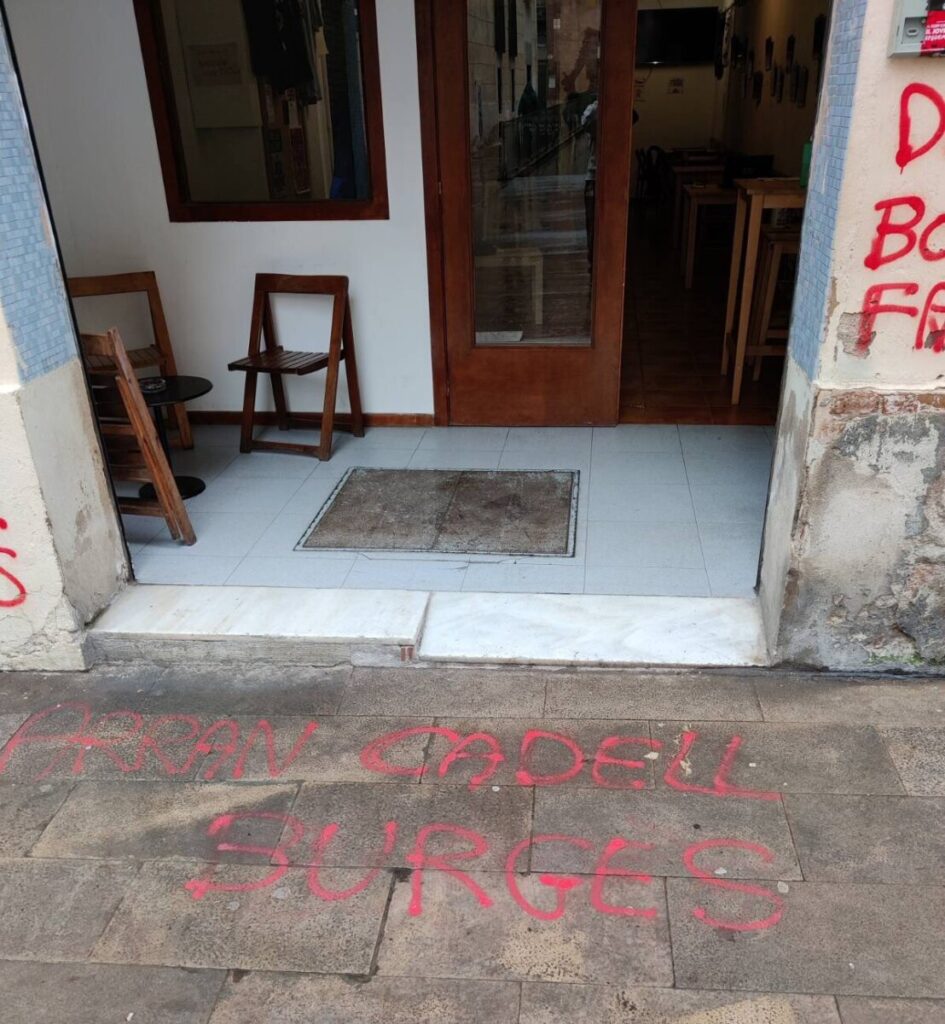 D
BO
FA
S
ARRAN CADELL
BURGES